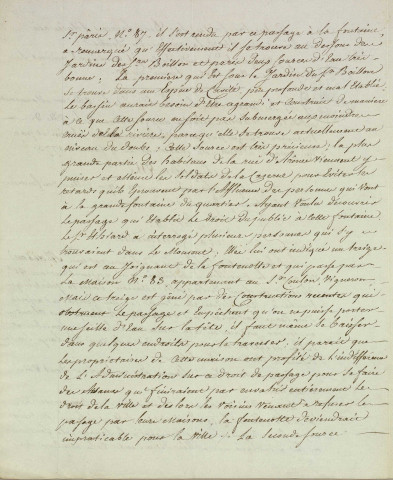 Sr père, No. 87, il s'est rendu par ce passage à la fontaine,
a remarqué qu'effectivement il se trouve au dessous des
Jardins des Srs Baillon et perès deux sources d'Eau très
bonne. La première qui est sous le Jardin du Sr Baillon
se trouve dans un espèce de Cuvée peu profonde et mal établie.
Le bassin aurait besoin d'être agrandi et construit de manière
à ce que cette source ne soit pas submergée aux moindres
crües de la rivière, parce qu'elle se trouve actuellement au
niveau du Doubs; cette source est très précieuse; la plus
grande partie des habitans de la rue d'Arènes viennent y
puiser et même les Soldats de la Caserne pour éviter les
retards qu'ils éprouvent par l'affluence des personnes qui vont
à la grande fontaine du quartier. Ayant voulu découvrir
le passage qui établit le droit du public à cette fontaine,
le Sr a interrogé plusieurs personnes qui s'y
trouvaient dans le Moment; Elles lui ont indiqué un treige
qui est au Joignant de la fontenotte et qui passe par
la Maison No. 83, appartenant au Sr Coulon, Vigneron
Mais ce treige est gêné par des Constructions récentes qui
obstruent le passage et empêchent qu'on ne puisse porter
une seille d'Eau sur la tête, il faut même se baisser
dans quelques endroits pour le traverser. il parait que
les propriétaires de cette maison ont profité de l'indifférence
de L'Administration sur ce droit de passage pour se faire
des qui finiraient par envahir entièrement le
droit de la ville et des lors les Voisins venant à refuser le
passage par leurs Maisons, la fontenotte deviendrait
impraticable pour la ville. La seconde source